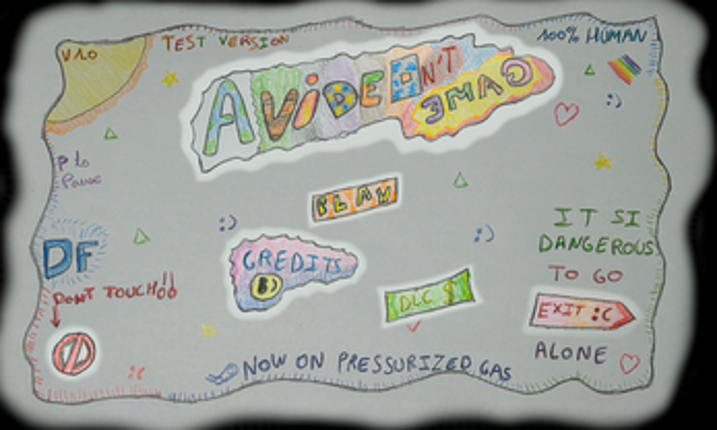 V1.0
TEST VERSION
100% HUMAN
AViDEON'T
ƎMAG
:)
P to
Pause
:)
:)
IT SI
DANGEROUS
TO GO
DF
CREDITS
B)
DLC $
DONT TOUCH!!
EXIT :C
ALONE
:C
NOW ON PRESSURIZED GAS